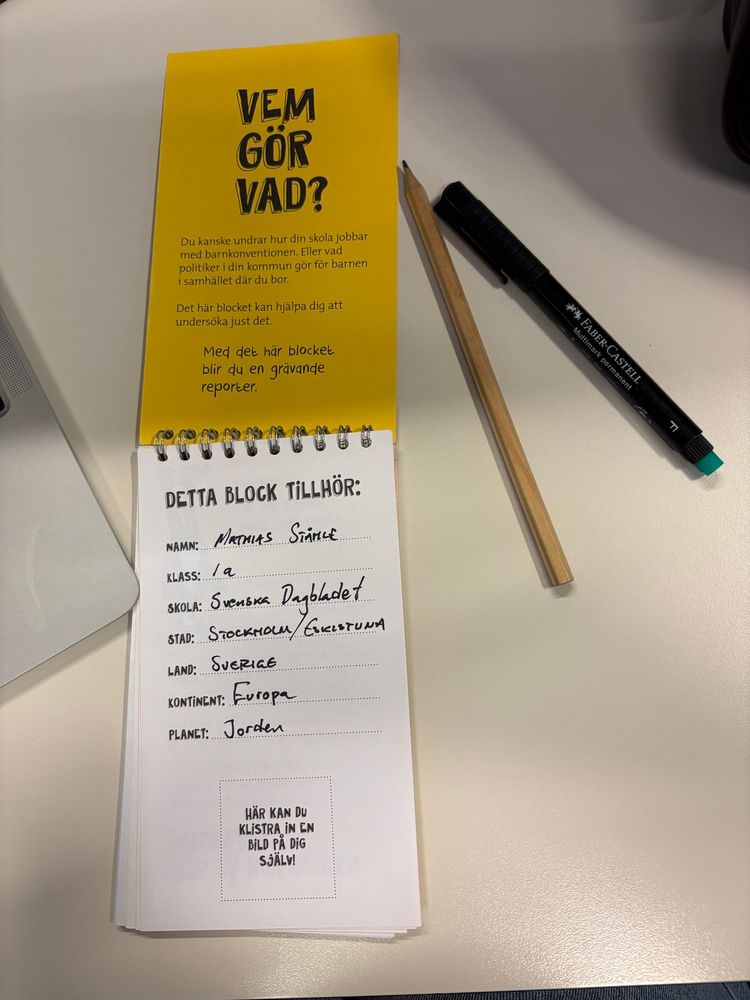 VEM
GÖR
VAD?
Du kanske undrar hur din skola jobbar
med barnkonventionen. Eller vad
politiker i din kommun gör för barnen
i samhället där du bor.
Det här blocket kan hjälpa dig att
undersöka just det.
Med det här blocket
blir du en grävande
reporter.
DETTA BLOCK TILLHÖR:
NAMN: MATHIAS STÅHLE
KLASS: 1a
SKOLA: Svenska Dagbladet
STAD: STOCKHOLM/ESKILSTUNA
LAND: SVERIGE
KONTINENT: Europa
PLANET: Jorden
HÄR KAN DU
KLISTRA IN EN
BILD PÅ DIG
SJÄLV!
FABER-CASTELL
Multimark permanent
F